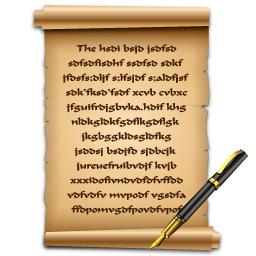 The hsdi bsjd jsdfsd
sdfsdfisdhf ssdfsd sdkf
jfdsfs:dljf s:lfsjdf s:aldfjsf
sdk'fksd'fsd xcvb cvbxc
jfguifrdjgbvka.hdif khg
nldkgldkfgdflkgdflgk
jkgbggkldsgldfkg
jsddsj bsdjfb sjdbcjk
jureuefruibvdjf kvjb
xxxidofivndvdfdfvffdd
vdfvdfv mvpodf vgsdfa
ffdpomvgdfpovdfvpof